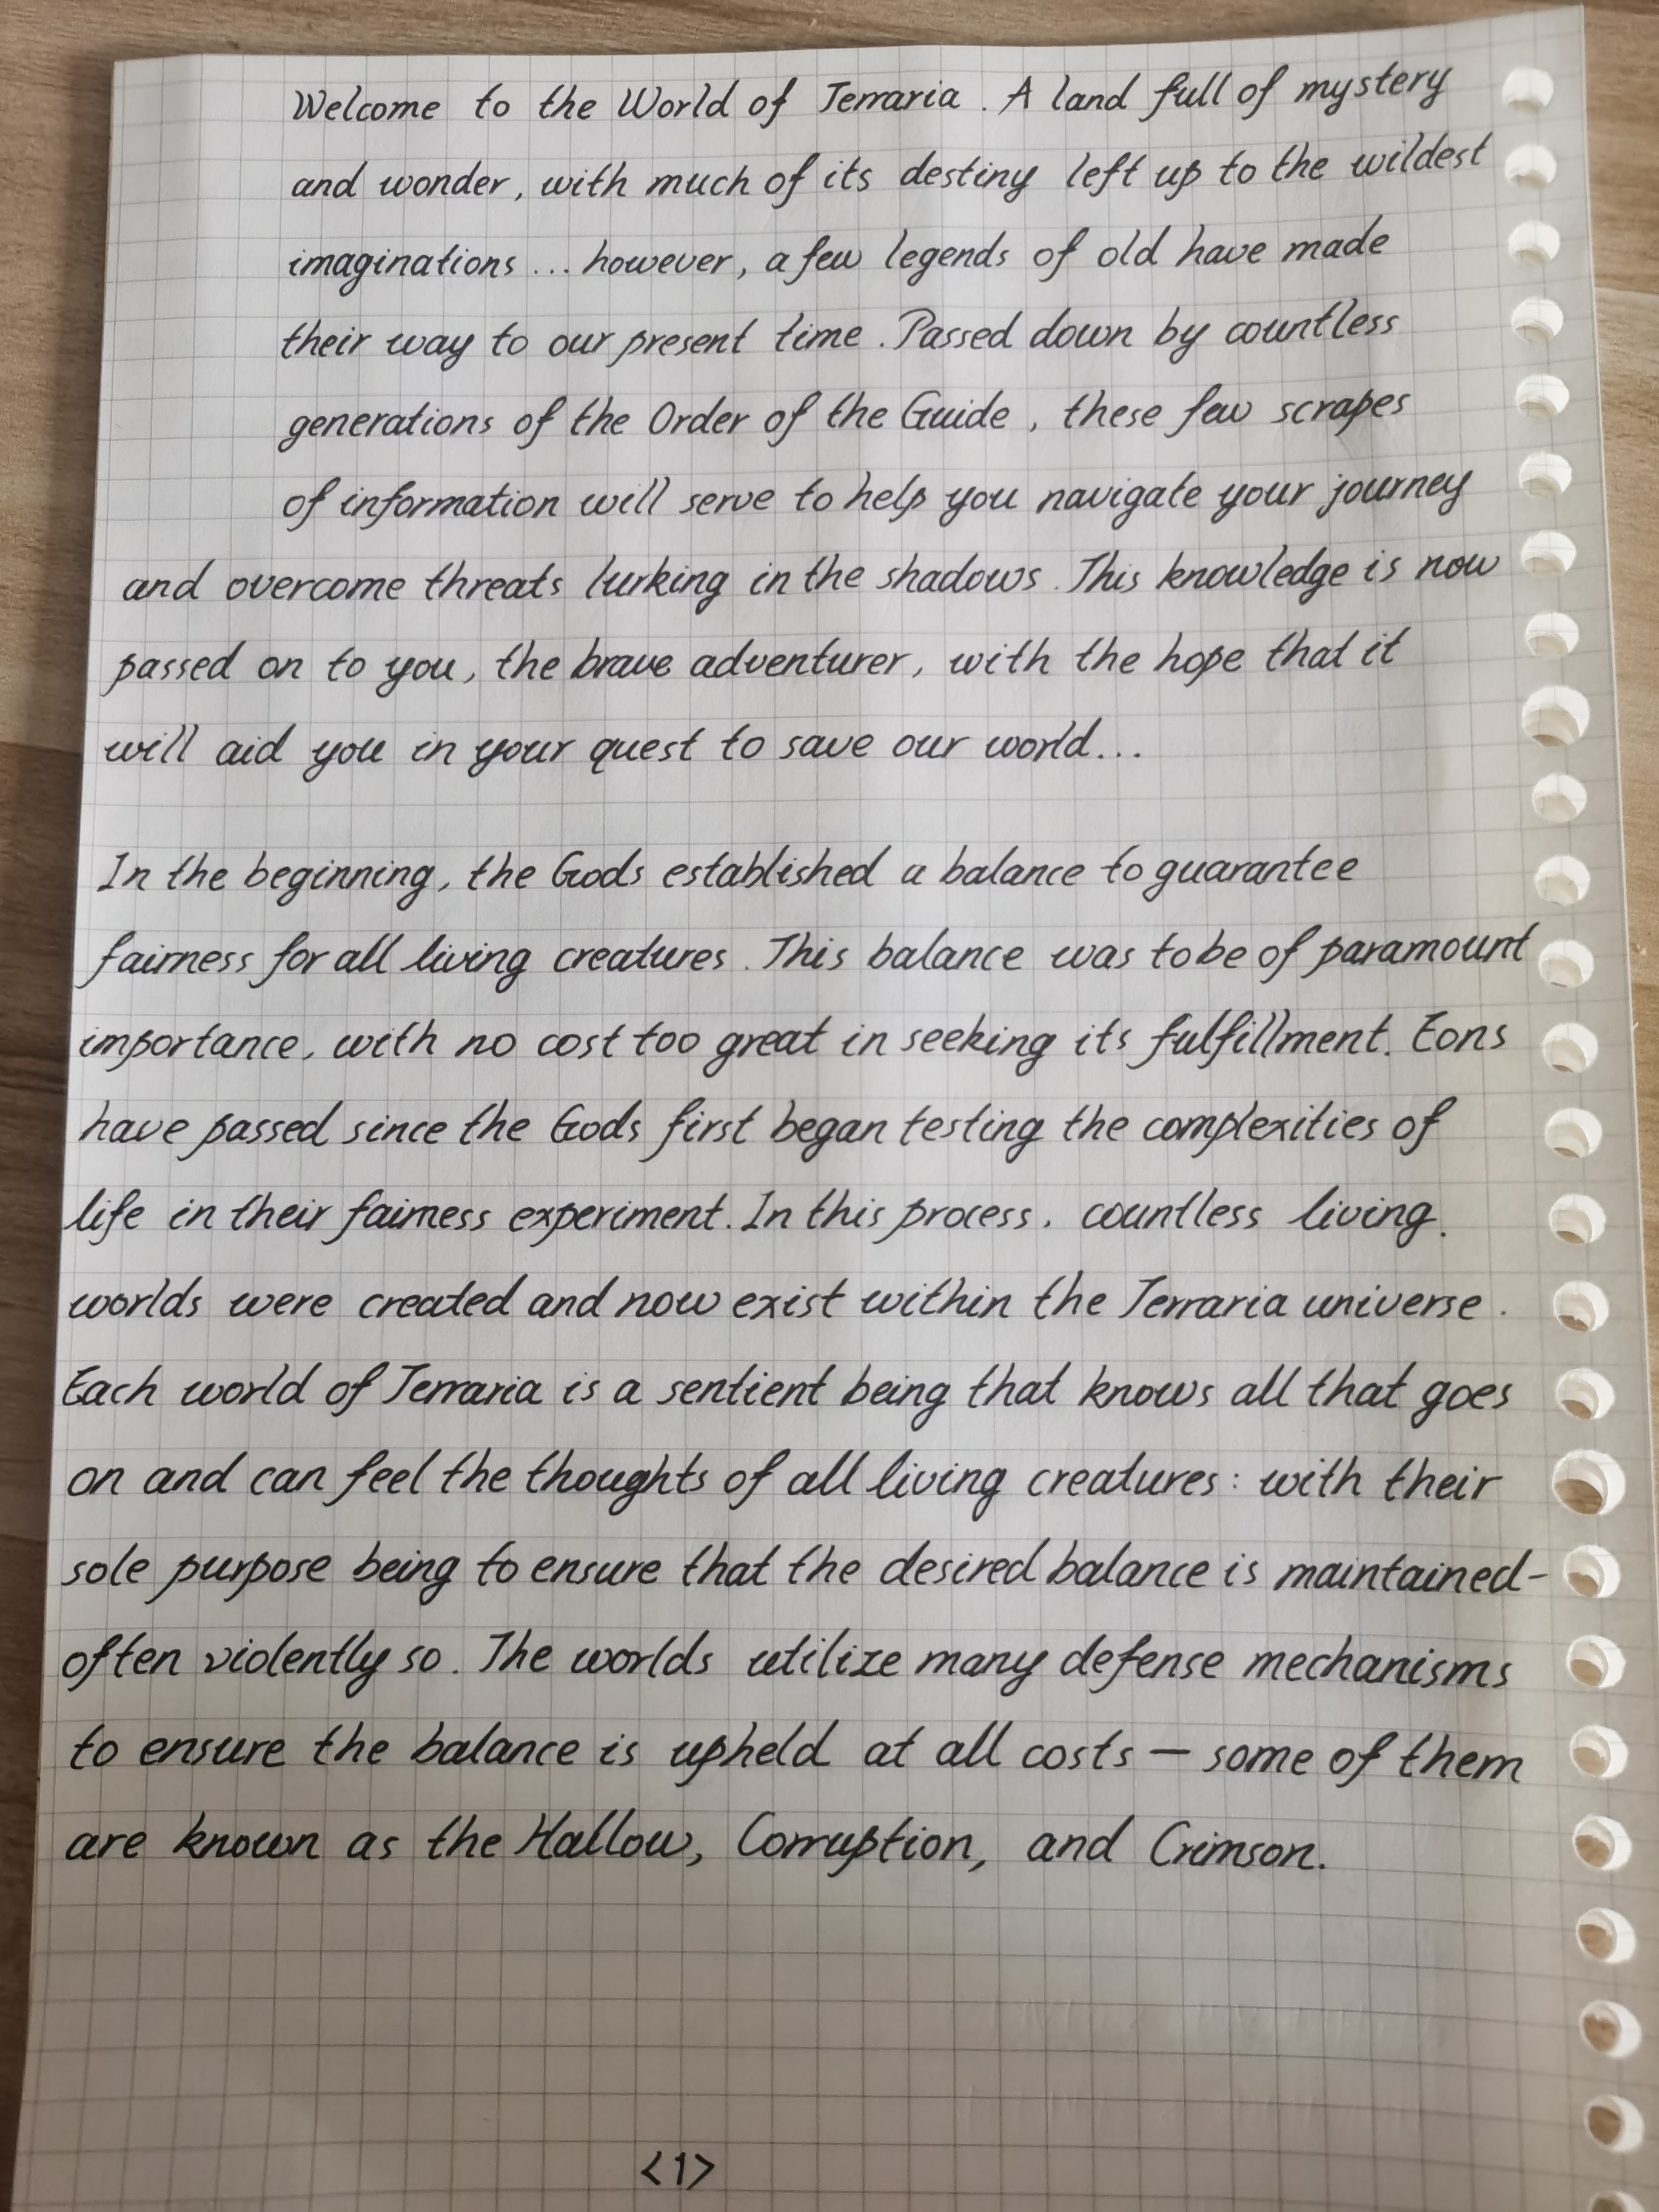 Welcome to the World of Terraria. A land full of mystery
and wonder, with much of its destiny left up to the wildest
imaginations... however, a few legends of old have made
their way to our present time. Passed down by countless
generations of the Order of the Guide, these few scrapes
of information will serve to help you navigate your journey
and overcome threats lurking in the shadows. This knowledge is now
passed on to you, the brave adventurer, with the hope that it
will aid you in your quest to save our world...
In the beginning, the Gods established a balance to guarantee
fairness for all living creatures. This balance was to be of paramount
importance, with no cost too great in seeking its fulfillment. Eons
have passed since the Gods first began testing the complexities of
life in their fairness experiment. In this process, countless living.
worlds were created and now exist within the Terraria universe.
Each world of Terraria is a sentient being that knows all that goes
on and can feel the thoughts of all living creatures: with their
sole purpose being to ensure that the desired balance is maintained-
often violently so. The worlds utilize many defense mechanisms
to ensure the balance is upheld at all costs — some of them
are known as the Hallow, Corruption, and Crimson.
<1>